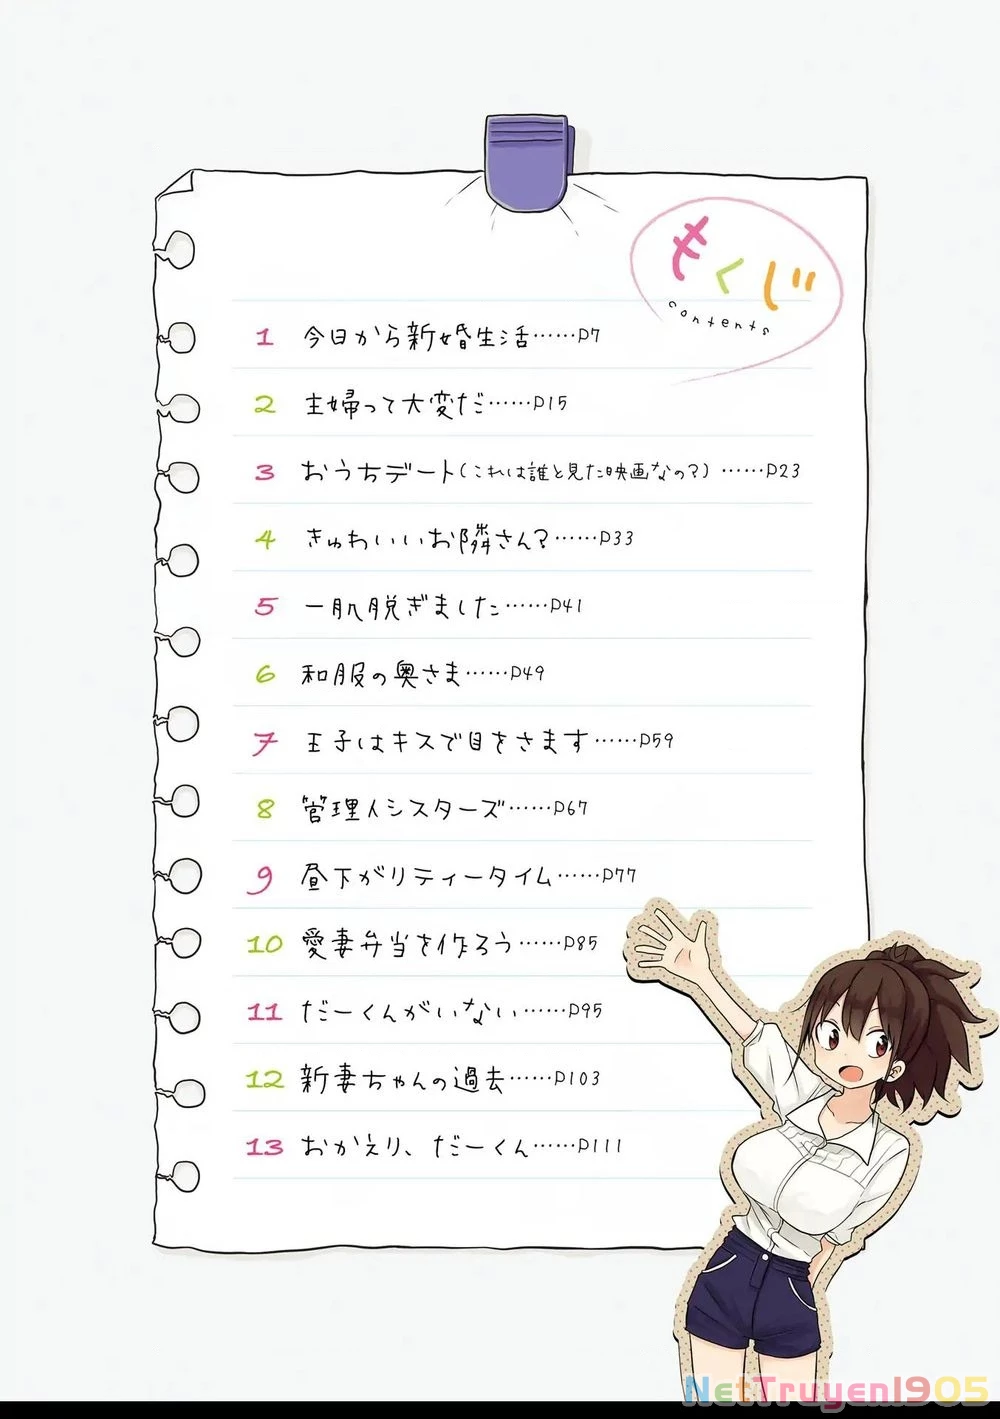 もくじ
contents
1 今日から新婚生活……P7
2 主婦って大変だ……P15
3 おうちデート(これは誰と見た映画なの?)……P23
4 きゅわいいお隣さん?……P33
5 一肌脱ぎました……P41
6 和服の奥さま……P49
7 王子はキスで目をさます……P59
8 管理人シスターズ……P67
9 昼下がりティータイム……P77
10 愛妻弁当を作ろう……P85
11 だーくんがいない……P95
12 新妻ちゃんの過去……P103
13 おかえり、だーくん……P111
NetTruyen1905